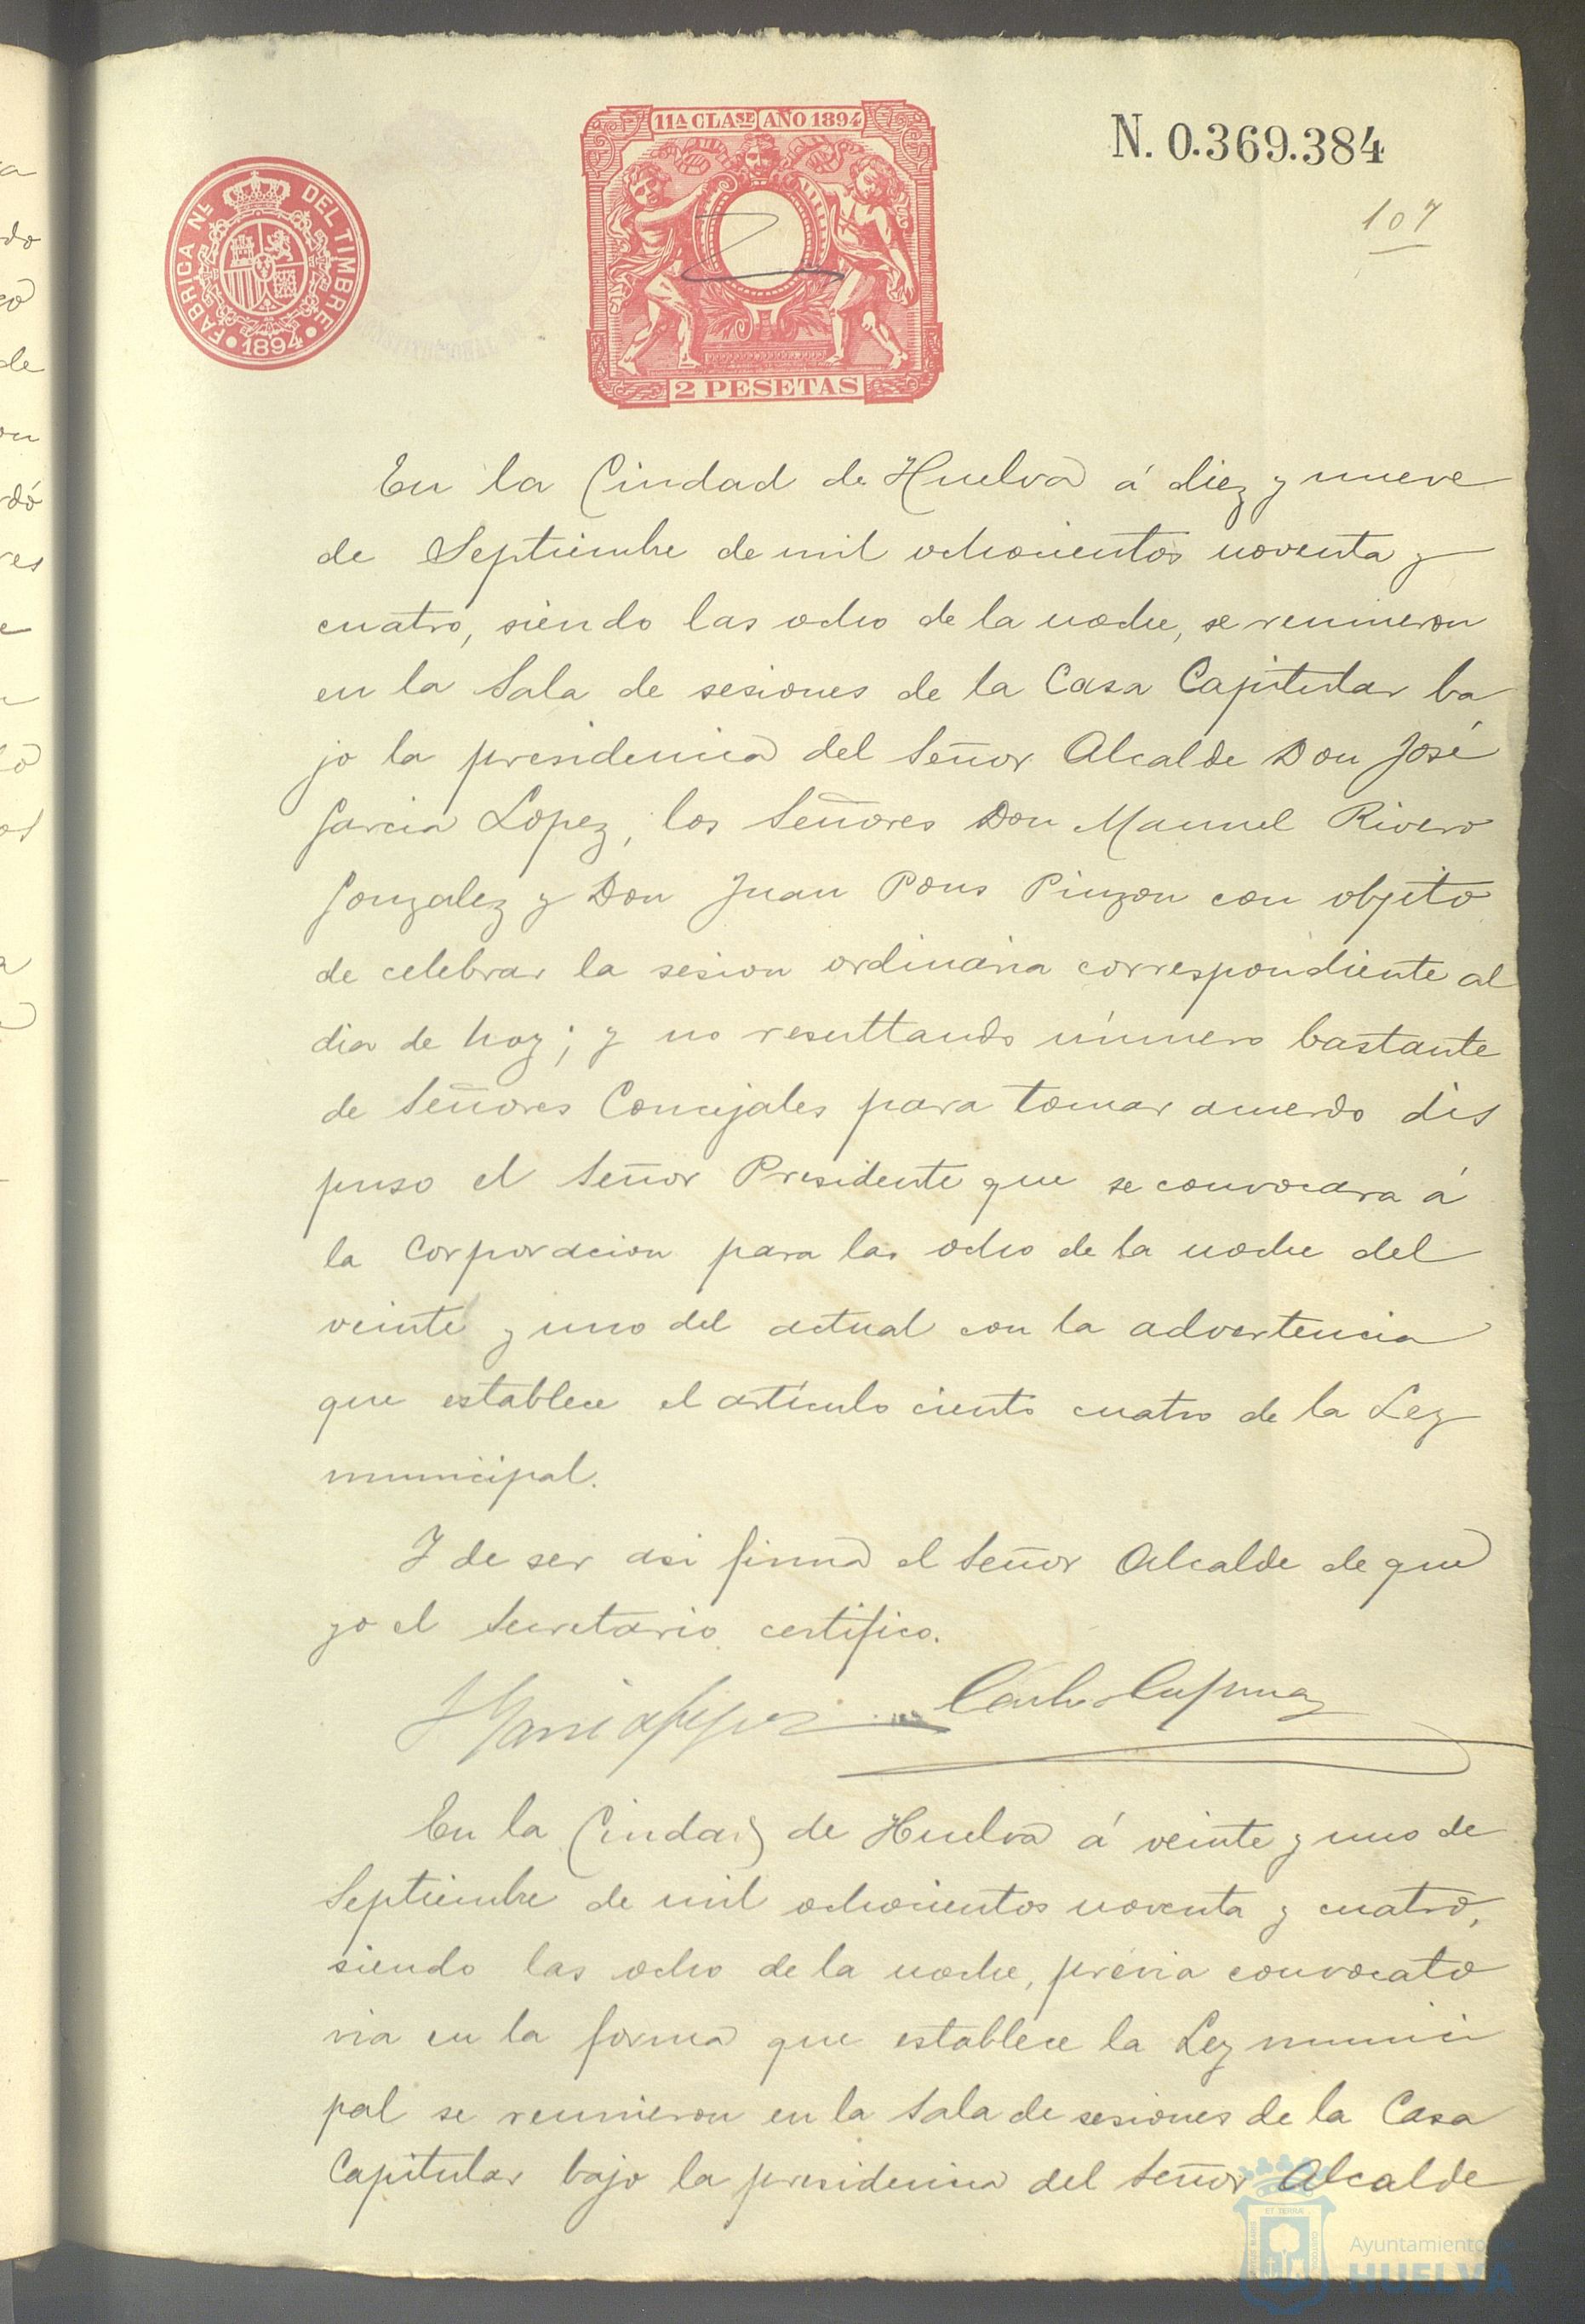 11ª CLASE AÑO 1894
N. 0.369.384
FABRICA Nˡ DEL TIMBRE
1894
107
2 PESETAS
En la Ciudad de Huelva á diez y nueve
de Septiembre de mil ochocientos noventa y
cuatro, siendo las ocho de la noche, se reunieron
en la Sala de sesiones de la Casa Capitular ba
jo la presidencia del Señor Alcalde Don José
Garcia Lopez, los Señores Don Manuel Rivero
Gonzalez y Don Juan Pons Pinzon con objeto
de celebrar la sesion ordinaria correspondiente al
dia de hoy; y no resultando número bastante
de Señores Concejales para tomar acuerdo dis
puso el Señor Presidente que se convocara á
la Corporacion para las ocho de la noche del
veinte y uno del actual con la advertencia
que establece el artículo ciento cuatro de la Ley
municipal.
Y de ser asi firma el Señor Alcalde de que
yo el Secretario certifico.
J. Garcia Lopez
En la Ciudad de Huelva á veinte y uno de
Septiembre de mil ochocientos noventa y cuatro,
siendo las ocho de la noche, prévia convocato
ria en la forma que establece la Ley munici
pal se reunieron en la Sala de sesiones de la Casa
Capitular bajo la presidencia del Señor Alcalde
Ayuntamiento de
HUELVA